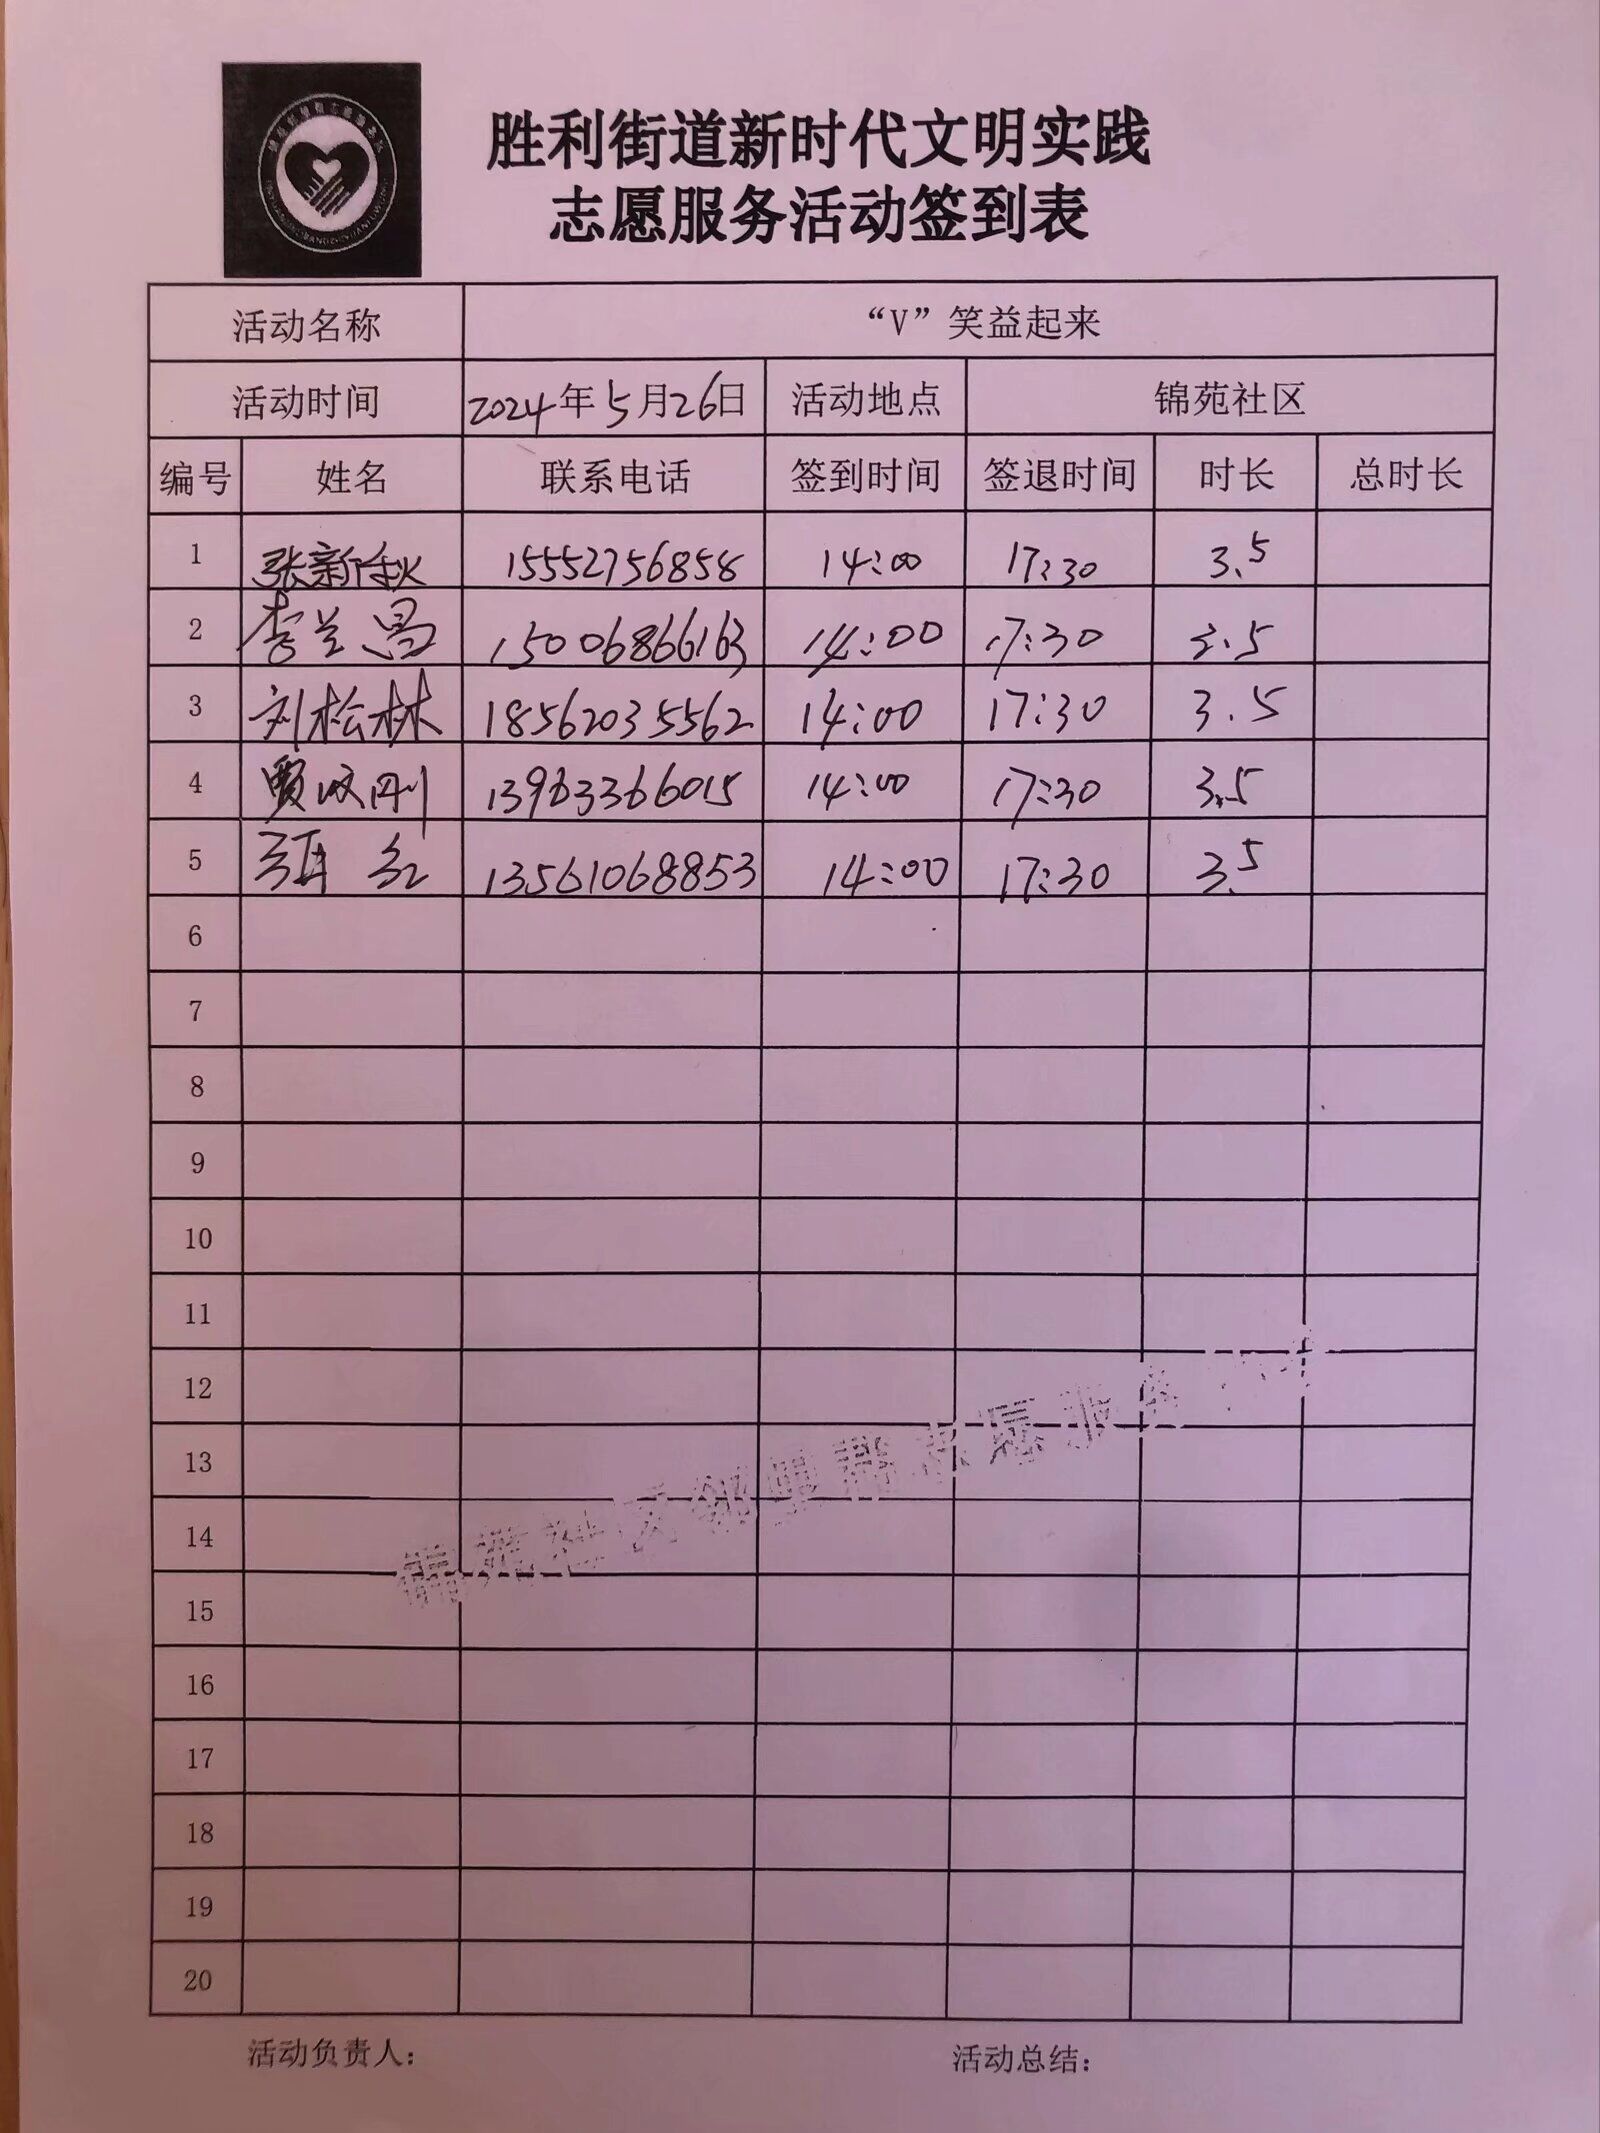 胜利街道新时代文明实践
志愿服务活动签到表
活动名称 “V”笑益起来
活动时间 2024年5月26日 活动地点 锦苑社区
编号 姓名 联系电话 签到时间 签退时间 时长 总时长
1 张新秋 15552756858 14:00 17:30 3.5
2 李兰昌 15006866163 14:00 17:30 3.5
3 刘松林 18562035562 14:00 17:30 3.5
4 贾文刚 13963366015 14:00 17:30 3.5
5 红 13561068853 14:00 17:30 3.5
6
7
8
9
10
11
12
13
14
15
16
17
18
19
20
锦苑社区邻里帮志愿服务
活动负责人： 活动总结：